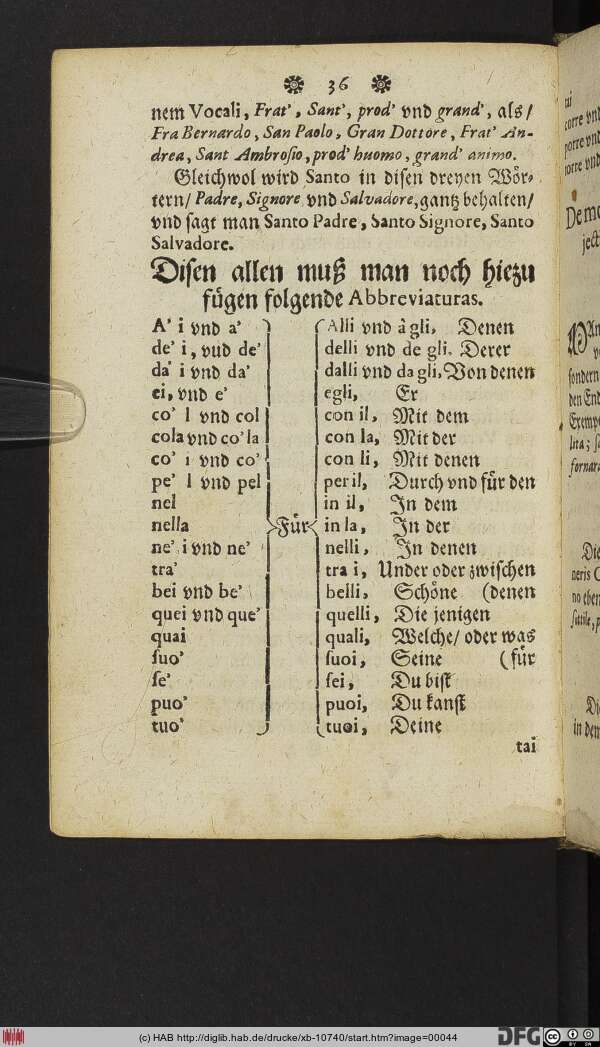 36
nem Vocali, Frat', Sant', prod' vnd grand', als/
Fra Bernardo, San Paolo, Gran Dottore, Frat' An-
drea, Sant Ambrosio, prod' huomo, grand' animo.
Gleichwol wird Santo in disen dreyen Wör-
tern/ Padre, Signore vnd Salvadore, gantz behalten/
vnd sagt man Santo Padre, Santo Signore, Santo
Salvadore.
Disen allen muß man noch hiezu
fügen folgende Abbreviaturas.
A' i vnd a' Alli vnd à gli, Denen
de' i, vud de' delli vnd de gli. Derer
da' i vnd da' dalli vnd da gli, Von denen
ei, vnd e' egli, Er
co' l vnd col con il, Mit dem
cola vnd co' la con la, Mit der
co' i vnd co' con li, Mit denen
pe' l vnd pel per il, Durch vnd für den
nel in il, In dem
nella Für in la, In der
ne' i vnd ne' nelli, In denen
tra' tra i, Under oder zwischen
bei vnd be' belli, Schöne (denen
quei vnd que' quelli, Die jenigen
quai quali, Welche/ oder was
suo' suoi, Seine (für
se' sei, Du bist
puo' puoi, Du kanst
tuo' tuoi, Deine
tai
tai
corre vnd
porre vnd
De mo
ject
sondern
den End
Exempe
lita; s
fornara
Die
neris C
no eben
sutile, p
Di
in dem
(c) HAB http://diglib.hab.de/drucke/xb-10740/start.htm?image=00044
DFG
CC BY SA